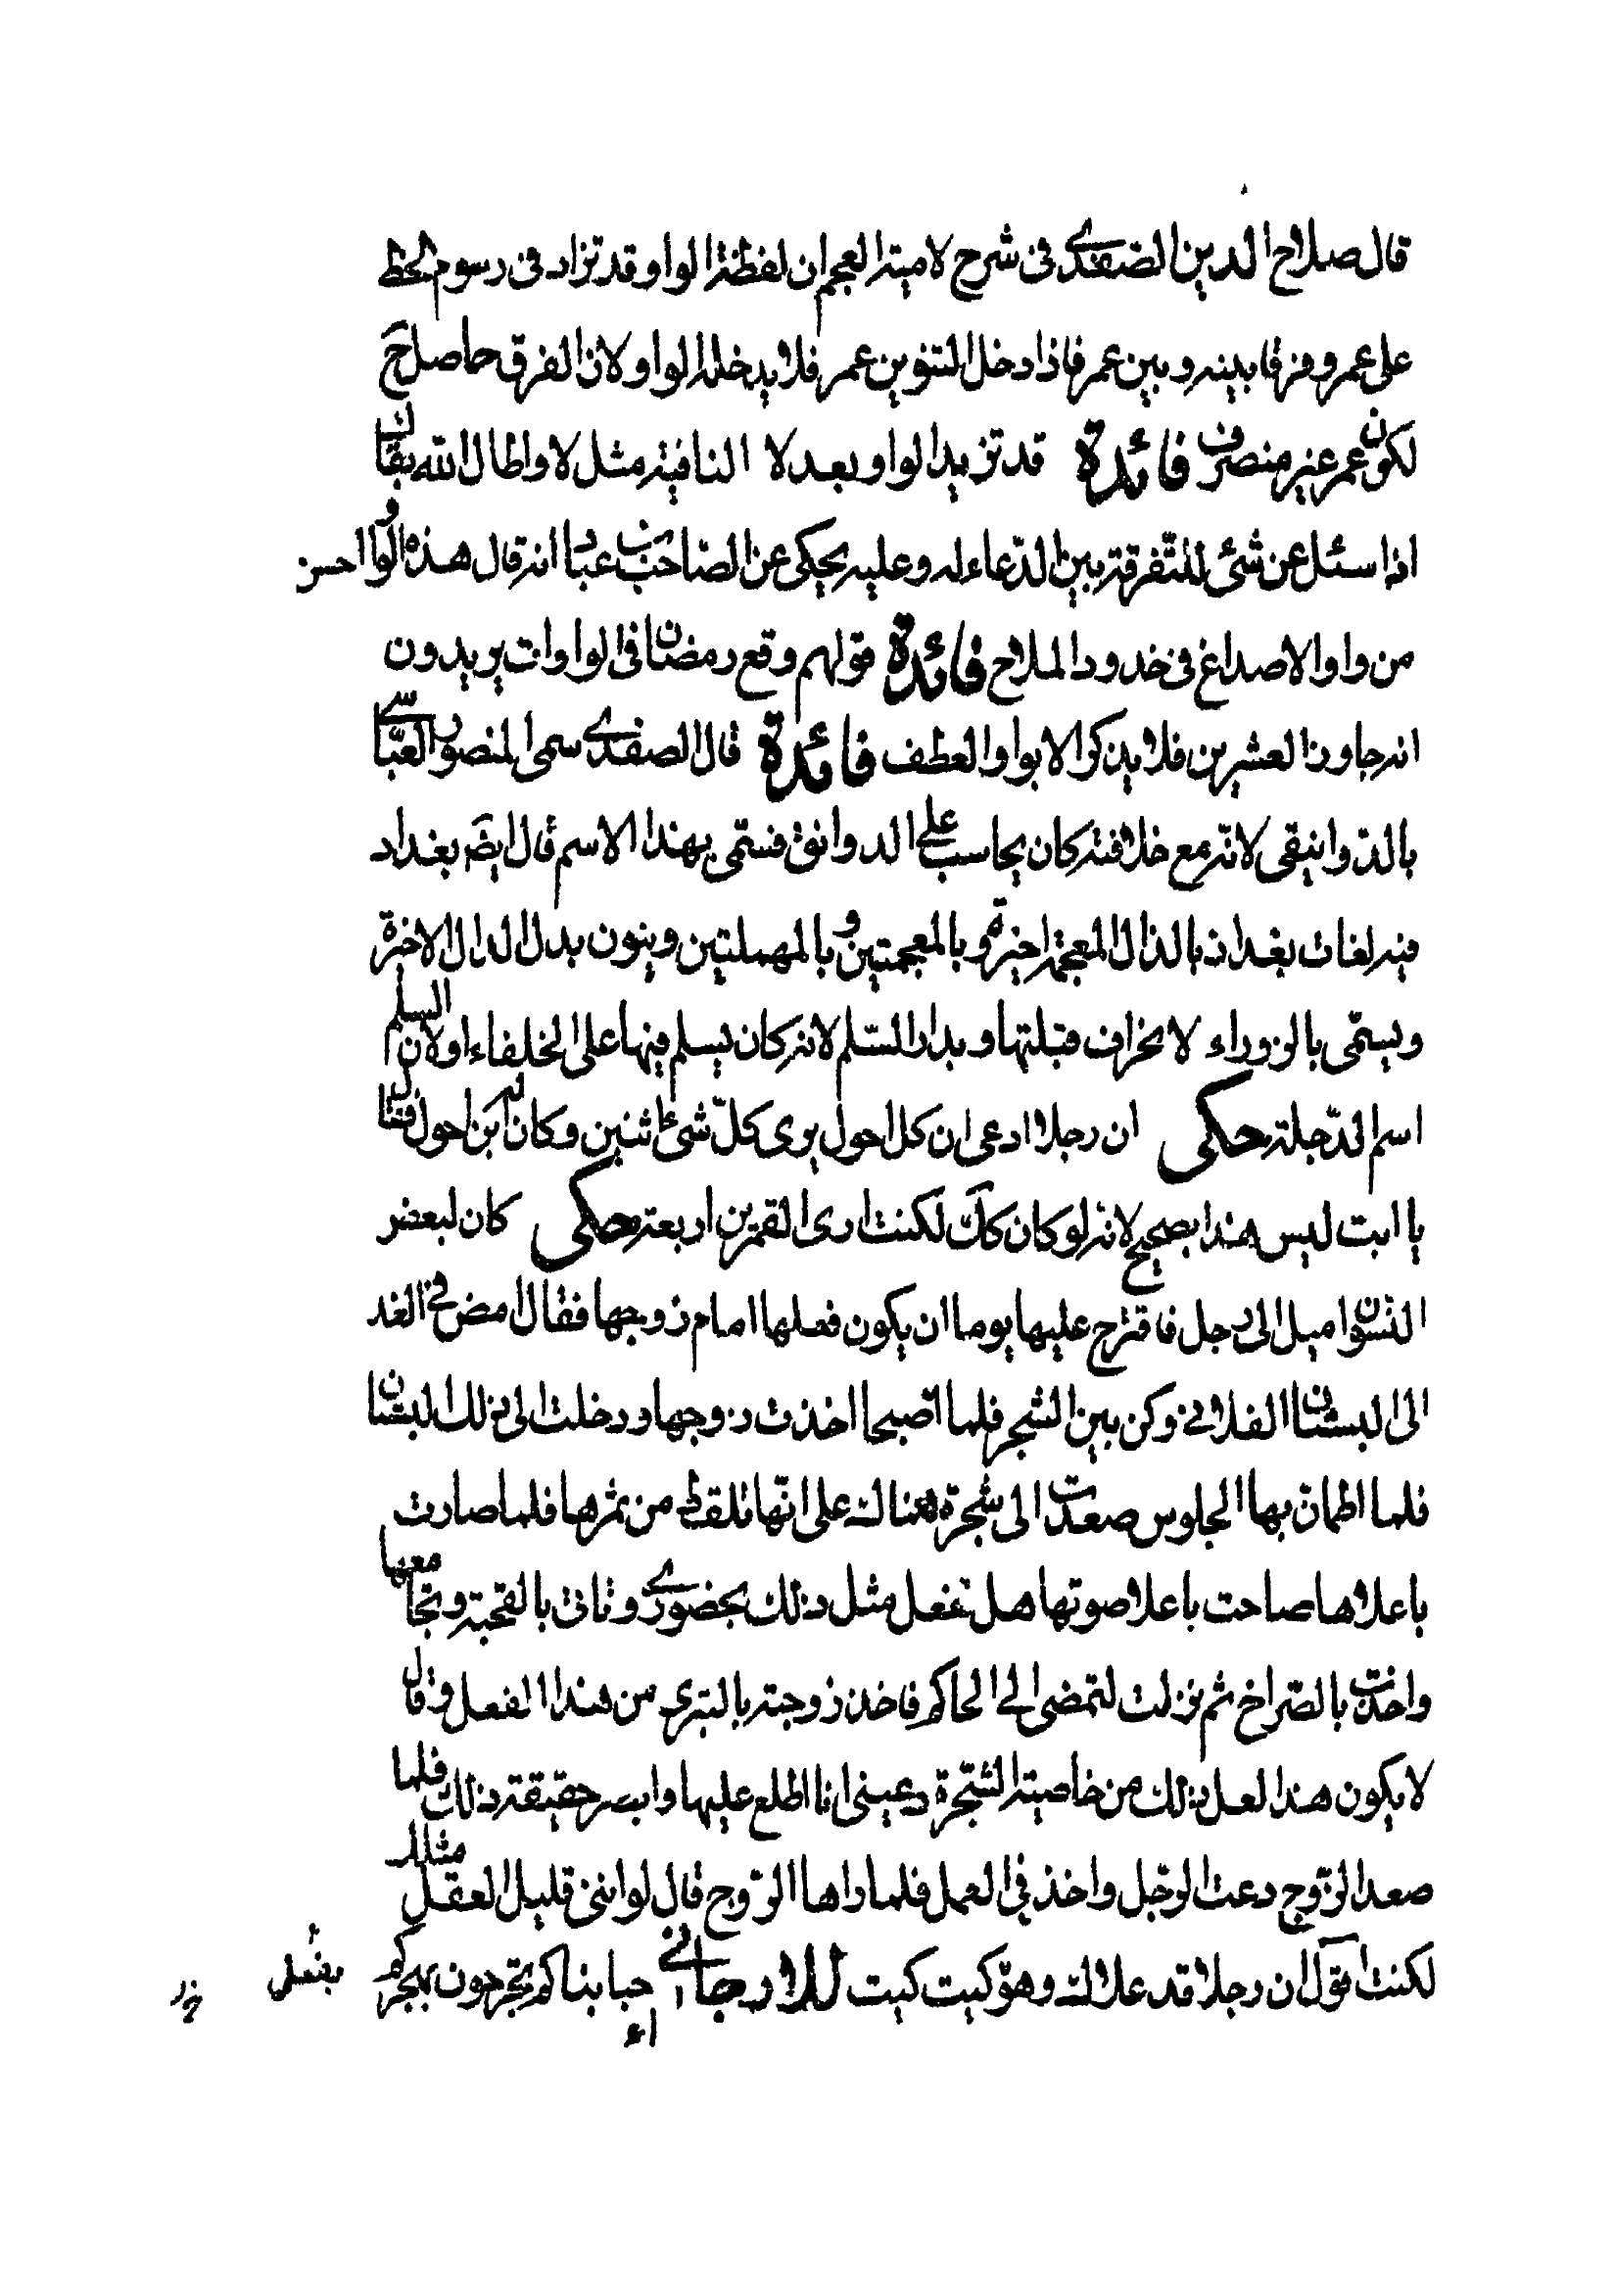 قال صلاح الدين الصفدى فى شرح لامية العجم ان لفظة الواو قد تزاد فى رسوم الخط
على عمرو فرقا بينه و بين عمر فاذا دخل التنوين عمر فلا يدخله الواو لان الفرق حاصل ح
لكون عمر غير منصرف فائدة قد تزيد الواو بعد لا النافية مثل لا واطال الله بقاك
اذا سئل عن شئ للتفرقة بين الدعاء له و عليه يحكى عن الصاحب بن عباد انه قال هذه الواو احسن
من واو الاصداغ فى خدود الملاح فائدة قولهم وقع رمضان فى الواوات يريدون
انه جاوز العشرين فلا يذكر الا بواو العطف فائدة قال الصفدى سمى المنصور العباسى
بالدوانيقى لانه مع خلافته كان يحاسب على الدوانق فسمى بهذا الاسم قال ايضا بغداد
فيه لغات بغداذ بالذال المعجمة اخيرة و بالمعجمتين و بالمهملتين و بنون بدل الدال الاخيرة
ويسمى بالزوراء لانحراف قبلتها و بدار السلم لانه كان يسلم فيها على الخلفاء او لان السلم
اسم لدجلة حكى ان رجلا ادعى ان كل احول يرى كل شئ اثنين و كان له ابن احول فقال
يا ابت ليس هذا بصحيح لانه لو كان كك لكنت ارى القمرين اربعة حكى كان لبعض
النسوان ميل الى رجل فاقترح عليها يوما ان يكون فعلها امام زوجها فقال امض فى الغد
الى البستان الفلانى وكن بين الشجر فلما اصبحا اخذت زوجها و دخلت الى ذلك البستان
فلما اطمان بها الجلوس صعدت الى شجرة هناك على انها تلقط من ثمرها فلما صارت
باعلاها صاحت باعلا صوتها هل تفعل مثل ذلك بحضورى و تاتى بالقحبة و تجامعها
واخذت بالصراخ ثم نزلت لتمضى الى الحاكم فاخذ زوجته بالتبرى من هذا الفعل و قال
لا يكون هذا لعل ذلك من خاصية الشجرة دعينى انا اطلع عليها و ابصر حقيقة ذلك فلما
صعد الزوج دعت الرجل واخذ فى العمل فلما راها الزوج قال لو اننى قليل العقل مثلك
لكنت اقول ان رجلا قد علاك و هو كيت كيت للارجانى احبابنا كم تجرحون بهجركم